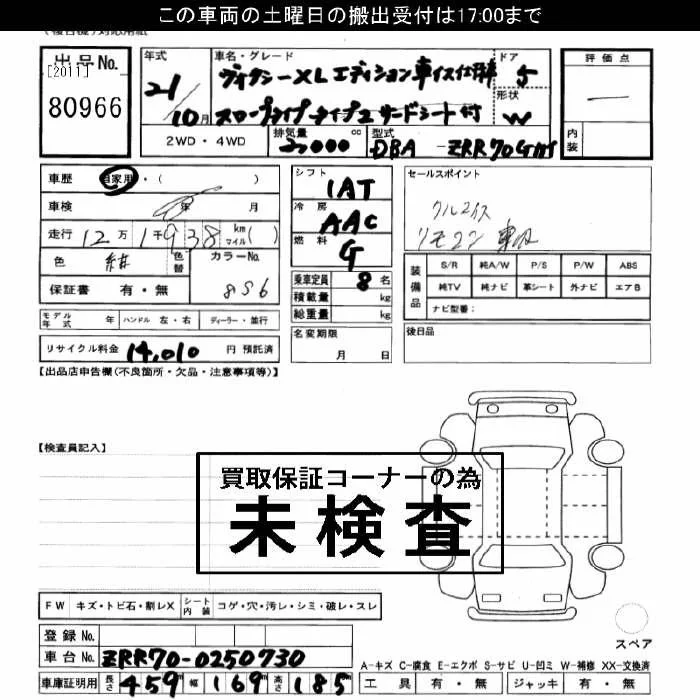 この車両の土曜日の搬出受付は17:00まで
出品No.
[2011]
80966
年式
21/10月
車名・グレード
ヴォクシーXLエディション車イス仕様
スロープタイプ タイプ2 サードシート付
ドア
5
形状
W
評価点
—
内装
2WD・4WD
排気量 2,000 cc
型式 DBA - ZRR70G
車歴 自家用・( )
車検 年 月
走行 12万1千938 km マイル( )
色 紺 色替 カラーNo. 8S6
保証書 有・無
シフト 1AT
冷房 AAC
燃料 G
乗車定員 8名
積載量 kg
総重量 kg
名変期限
月 日
セールスポイント
リモコン
装備品
S/R 純A/W P/S P/W ABS
純TV 純ナビ 革シート 外ナビ エアB
ナビ型番:
後日品
モデル年式 年 ハンドル 左・右 ディーラー・並行
リサイクル料金 14,010 円 預託済
【出品店申告欄(不良箇所・欠品・注意事項等)】
【検査員記入】
買取保証コーナーの為
未検査
FW キズ・トビ石・割レX シート内装 コゲ・穴・汚レ・シミ・破レ・スレ
登録No.
車台No. ZRR70-0250730
車庫証明用 長さ 459 幅 169 高さ 185
スペア
A-キズ C-腐食 E-エクボ S-サビ U-凹ミ W-補修 XX-交換済
工具 有・無 ジャッキ 有・無